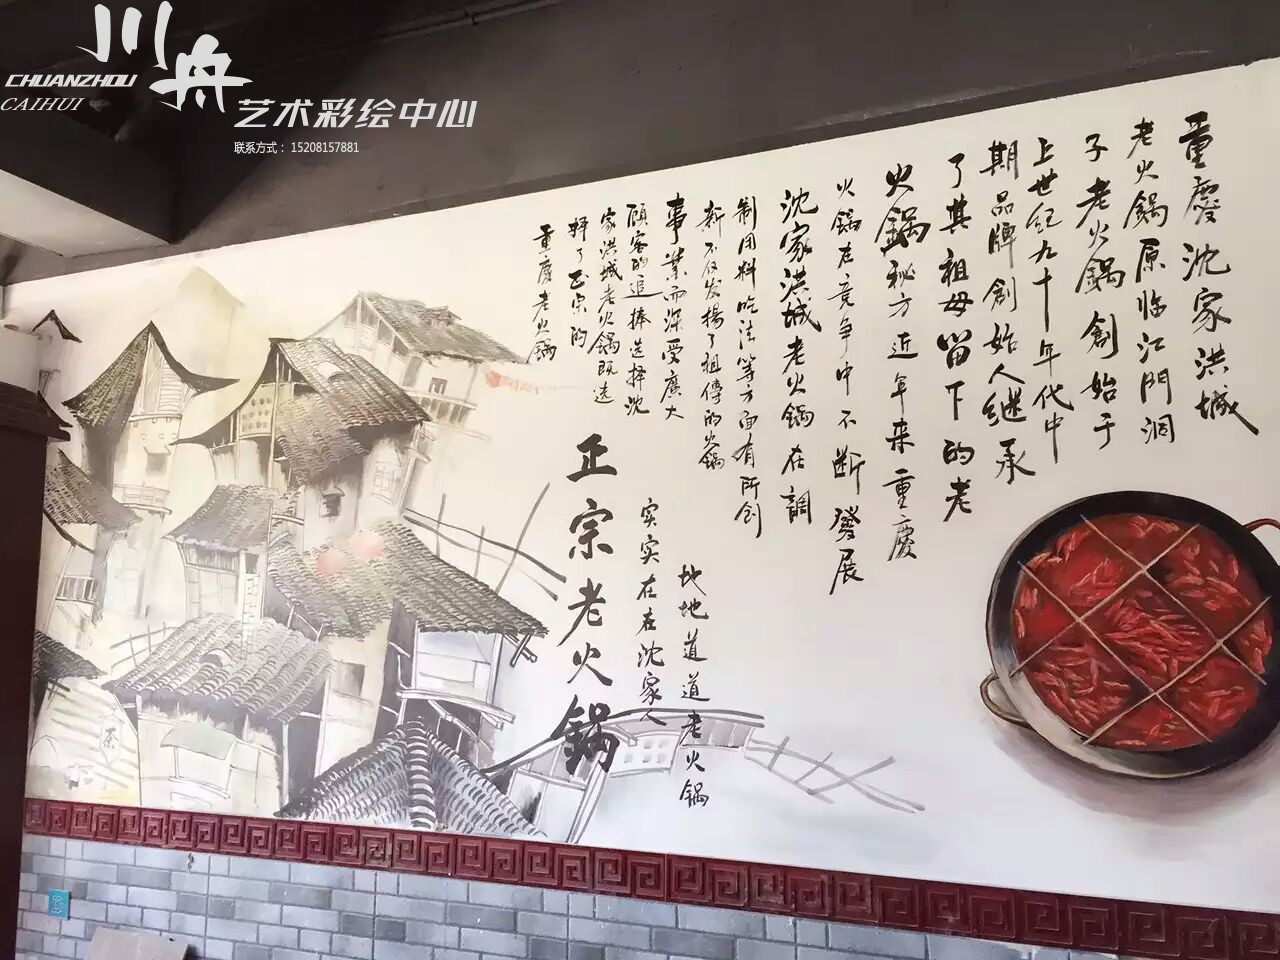 川舟
CHUANZHOU
CAIHUI
艺术彩绘中心
联系方式：15208157881
重慶沈家洪城
老火鍋原临江門洞
子老火鍋創始于
上世纪九十年代中
期品牌創始人继承
了其祖母留下的老
火鍋秘方近年来重慶
火鍋在竞争中不断發展
沈家洪城老火鍋在調
制用料吃法等方面有所创
新不仅发揚了祖傳的火鍋
事業而深受廣大
顾客的追捧选择沈
家洪城老火鍋既选
择了正宗的
重慶老火鍋
地地道道老火鍋
实实在在沈家人
正宗老火鍋
茶